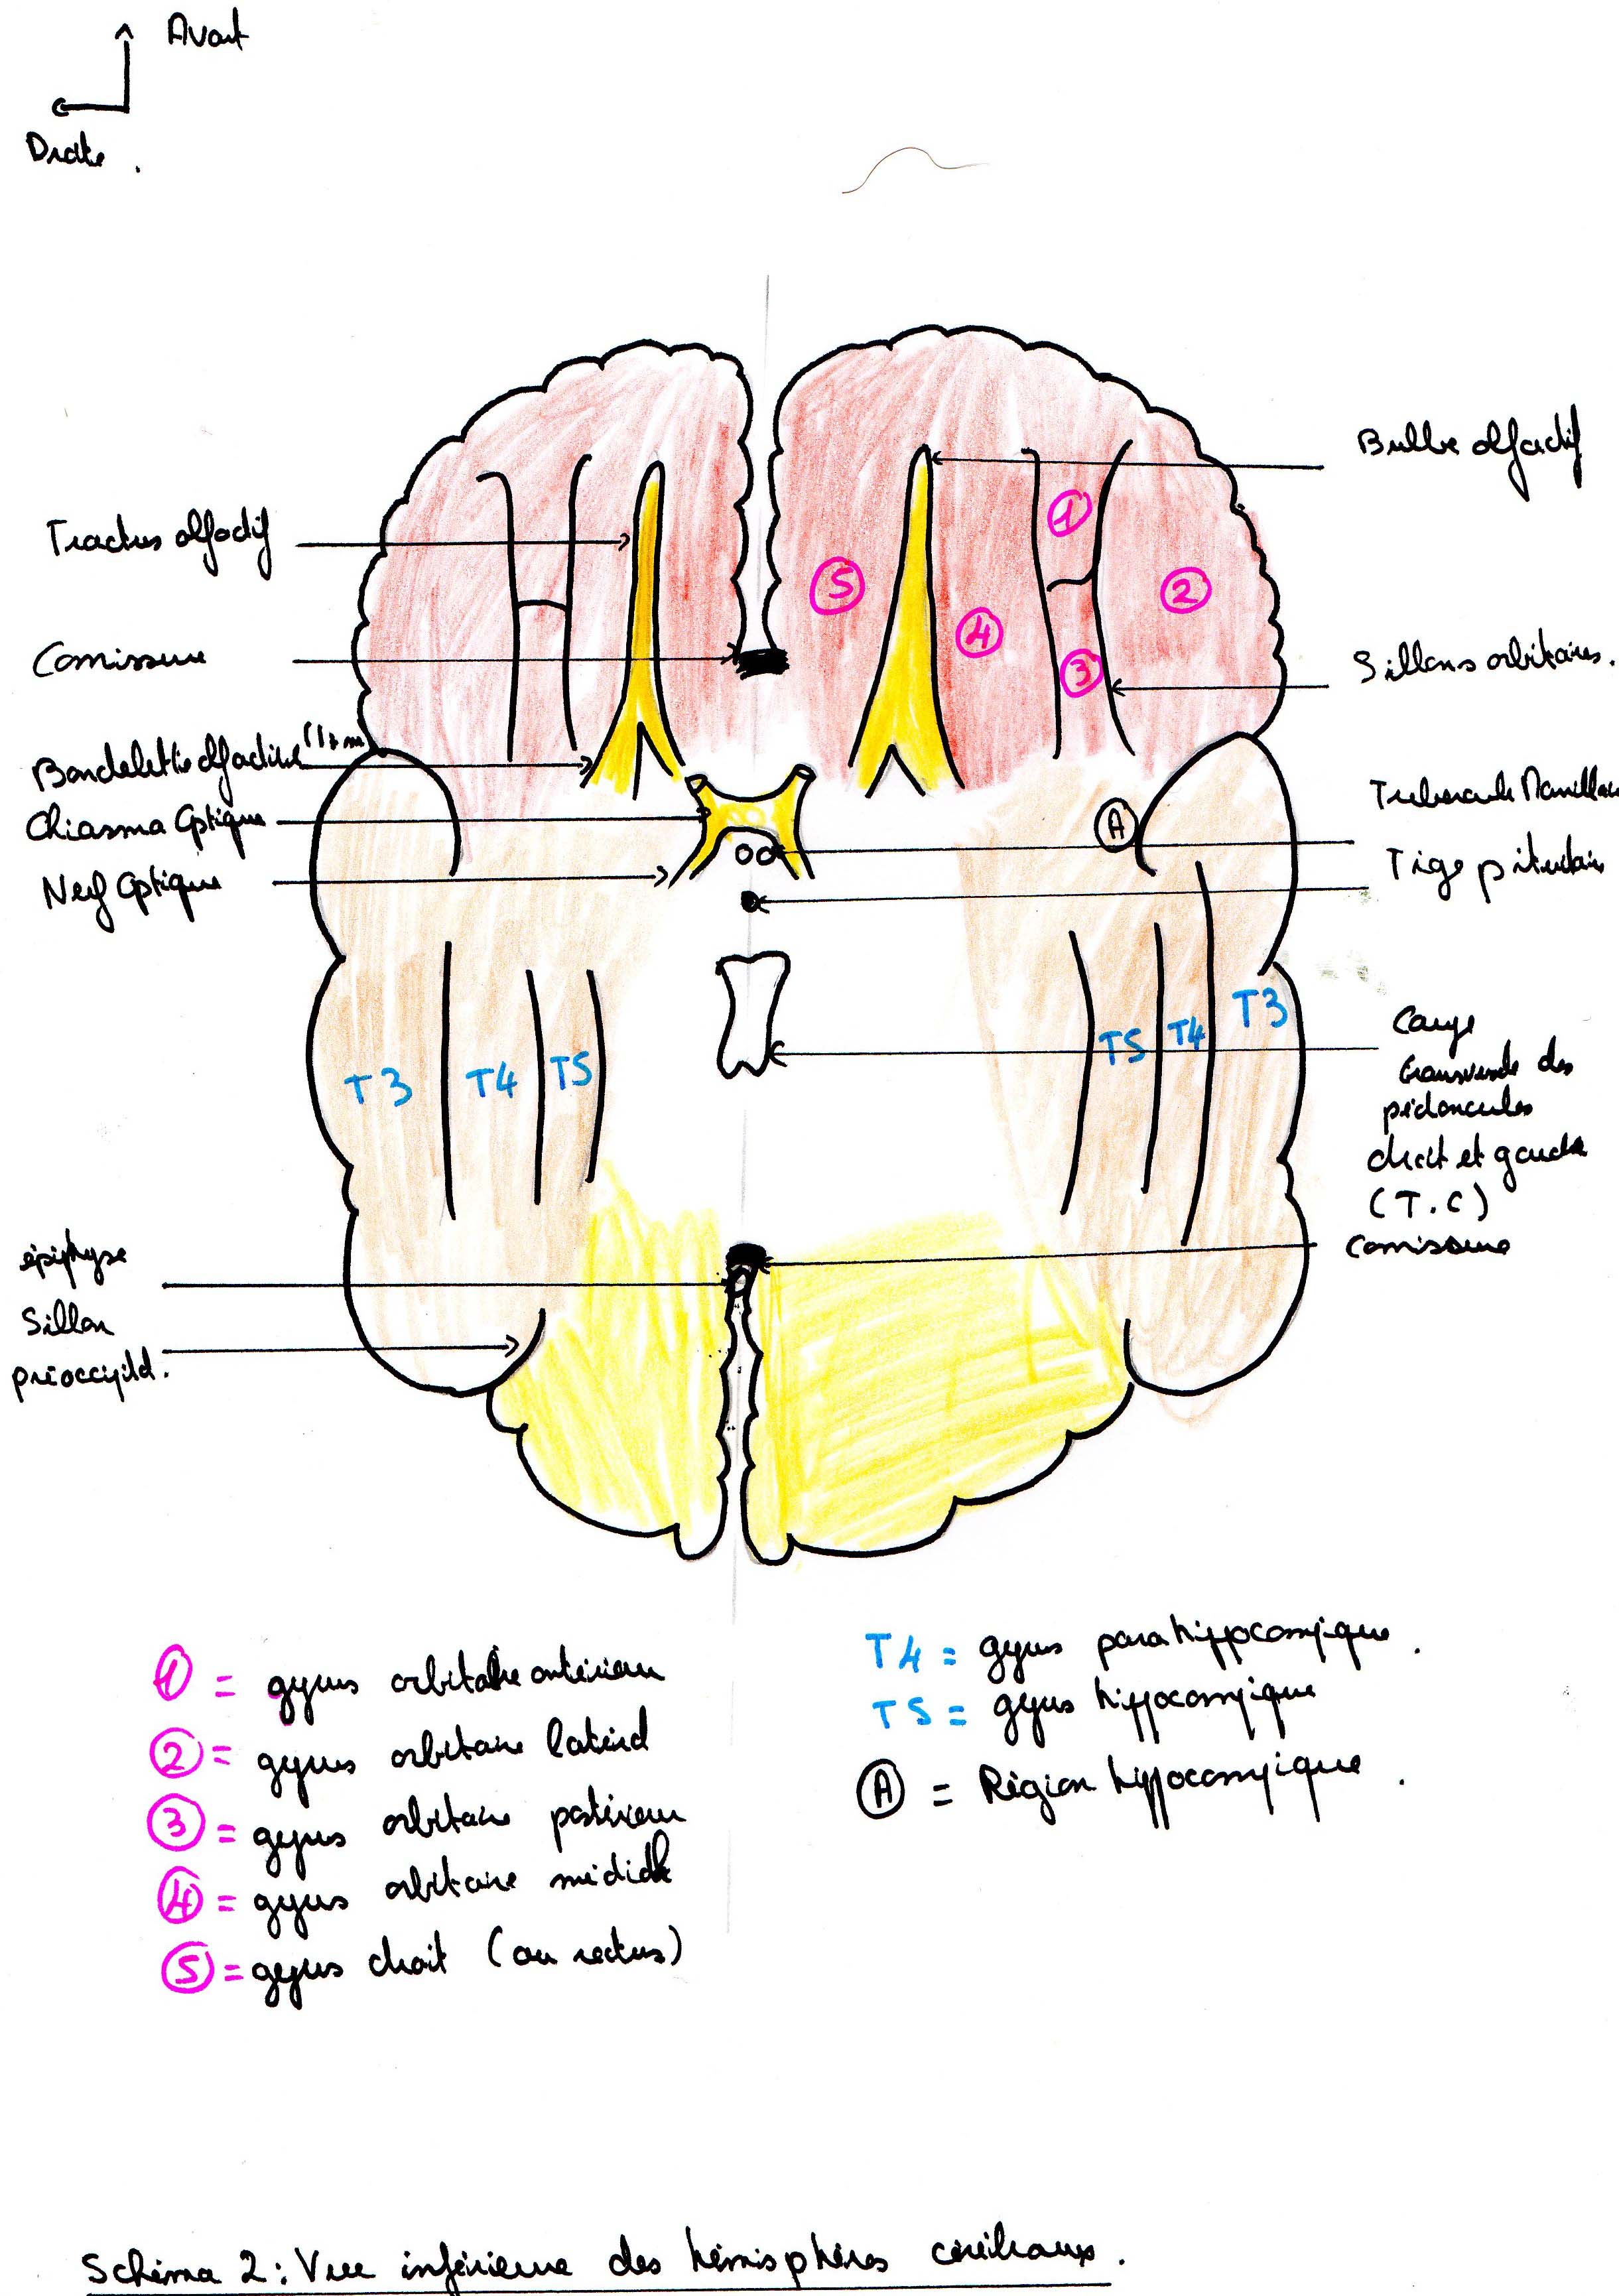 Avant
Droite.
Tractus olfactif
Comissure
Bandelette olfactive (l+m)
Chiasma Optique
Nerf Optique
épiphyse
Sillon
préoccipital.
Bulbe olfactif
Sillons orbitaires.
Tubercule Mamillaire
Tige pituitaire
Coupe
transversale des
pédoncules
droit et gauche
(T.C)
Comissure
1
2
3
4
5
A
T3
T4
T5
T5
T4
T3
1 = gyrus orbitaire antérieur
2 = gyrus orbitaire latéral
3 = gyrus orbitaire postérieur
4 = gyrus orbitaire médiale
5 = gyrus droit (ou rectus)
T4 = gyrus parahippocampique.
T5 = gyrus hippocampique
A = Région hippocampique.
Schéma 2: Vue inférieure des hémisphères cérébraux.